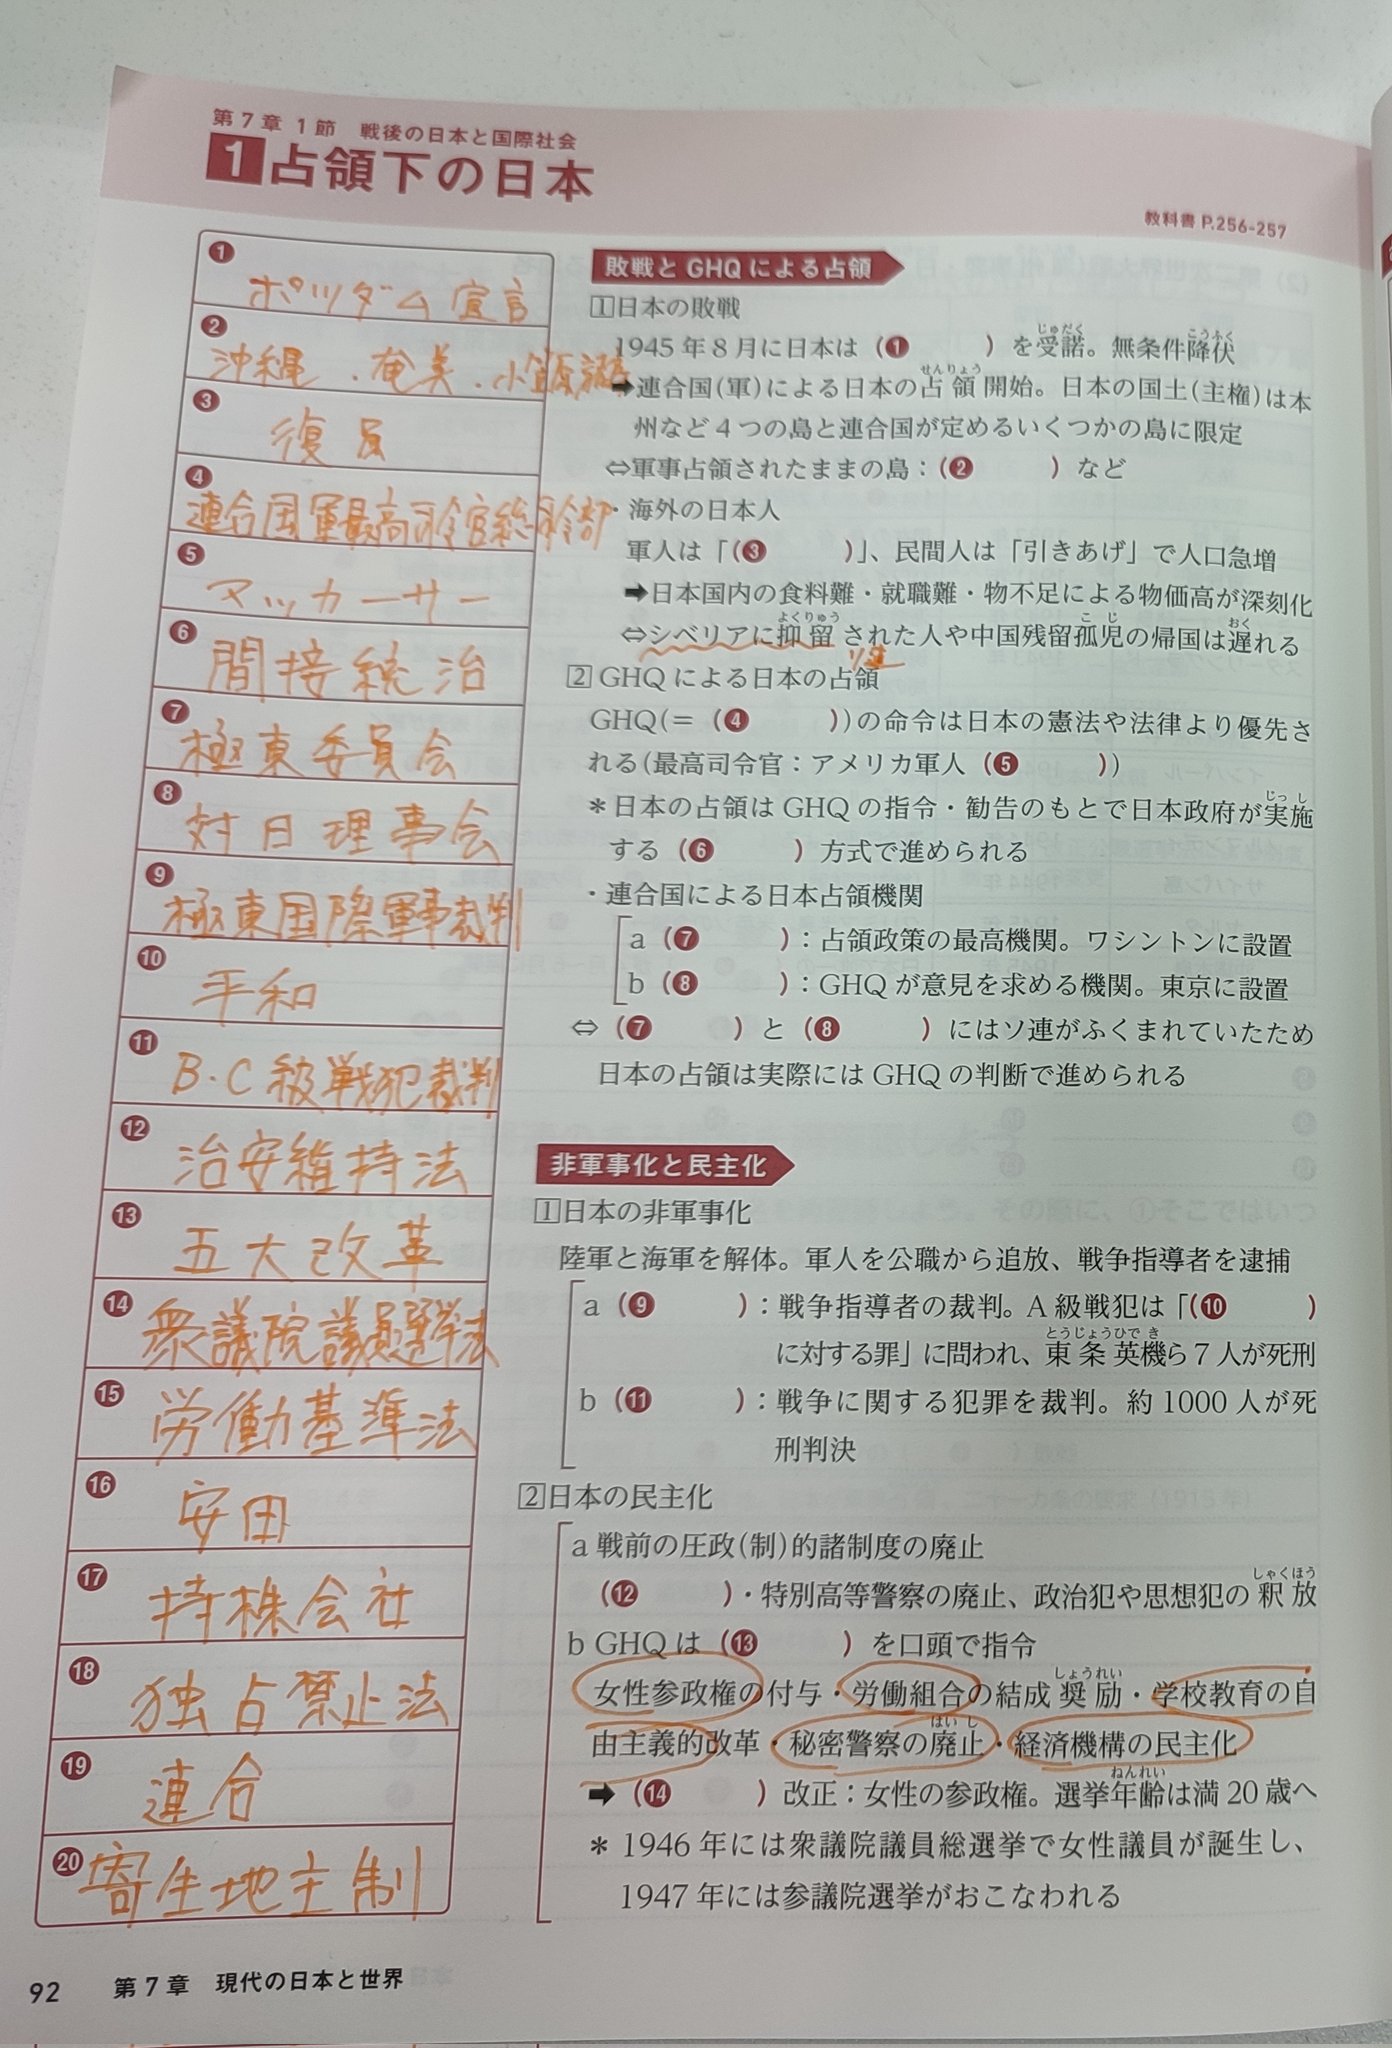 第7章 1節 戦後の日本と国際社会
1 占領下の日本
教科書 P.256-257
❶ ポツダム宣言
❷ 沖縄．奄美．小笠原諸島
❸ 復員
❹ 連合国軍最高司令官総司令部
❺ マッカーサー
❻ 間接統治
❼ 極東委員会
❽ 対日理事会
❾ 極東国際軍事裁判
❿ 平和
⓫ B.C級戦犯裁判
⓬ 治安維持法
⓭ 五大改革
⓮ 衆議院議員選挙法
⓯ 労働基準法
⓰ 安田
⓱ 持株会社
⓲ 独占禁止法
⓳ 連合
⓴ 寄生地主制
敗戦とGHQによる占領
1 日本の敗戦
1945年8月に日本は（❶　　）を受諾。無条件降伏
じゅだく こうふく
➡連合国(軍)による日本の占領開始。日本の国土(主権)は本
せんりょう
州など4つの島と連合国が定めるいくつかの島に限定
⇔軍事占領されたままの島：（❷　　）など
・海外の日本人
軍人は「（❸　　）」、民間人は「引きあげ」で人口急増
➡日本国内の食料難・就職難・物不足による物価高が深刻化
⇔シベリアに抑留された人や中国残留孤児の帰国は遅れる
よくりゅう こじ おく
ソ連
2 GHQによる日本の占領
GHQ(＝（❹　　）)の命令は日本の憲法や法律より優先さ
れる(最高司令官：アメリカ軍人（❺　　）)
＊日本の占領はGHQの指令・勧告のもとで日本政府が実施
じっし
する（❻　　）方式で進められる
・連合国による日本占領機関
a（❼　　）：占領政策の最高機関。ワシントンに設置
b（❽　　）：GHQが意見を求める機関。東京に設置
⇔（❼　　）と（❽　　）にはソ連がふくまれていたため
日本の占領は実際にはGHQの判断で進められる
非軍事化と民主化
1 日本の非軍事化
陸軍と海軍を解体。軍人を公職から追放、戦争指導者を逮捕
a（❾　　）：戦争指導者の裁判。A級戦犯は「（❿　　）
に対する罪」に問われ、東条英機ら7人が死刑
とうじょうひでき
b（⓫　　）：戦争に関する犯罪を裁判。約1000人が死
刑判決
2 日本の民主化
a 戦前の圧政(制)的諸制度の廃止
（⓬　　）・特別高等警察の廃止、政治犯や思想犯の釈放
しゃくほう
b GHQは（⓭　　）を口頭で指令
女性参政権の付与・労働組合の結成奨励・学校教育の自
しょうれい
由主義的改革・秘密警察の廃止・経済機構の民主化
はいし
➡（⓮　　）改正：女性の参政権。選挙年齢は満20歳へ
ねんれい
＊1946年には衆議院議員総選挙で女性議員が誕生し、
1947年には参議院選挙がおこなわれる
92 第7章 現代の日本と世界